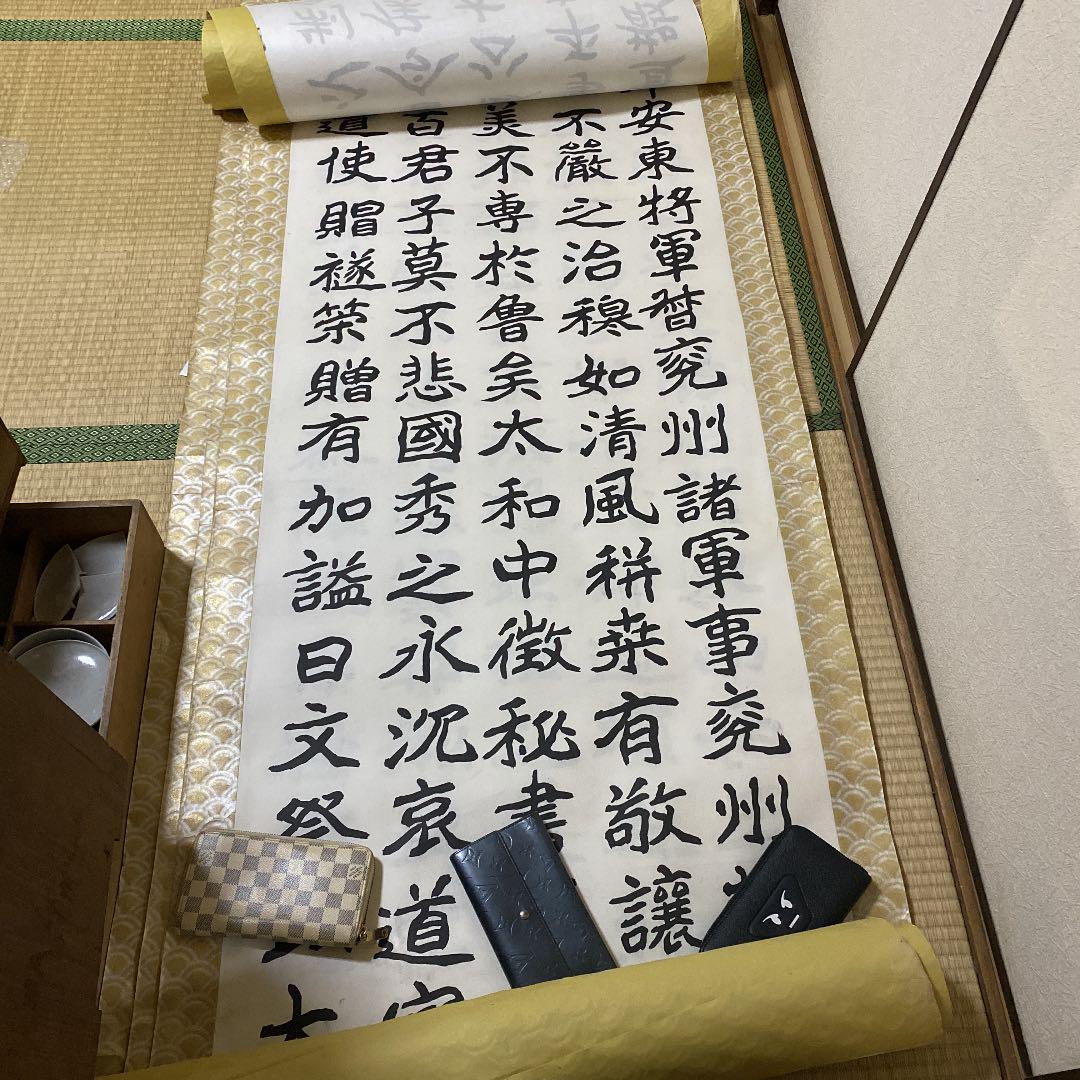 安東將軍督兗州諸軍事兗州
不嚴之治穆如清風耕桒有敬讓
美不専於魯矣太和中徵秘書
百君子莫不悲國秀之永沉哀道
道使賵襚策贈有加謚曰文祭